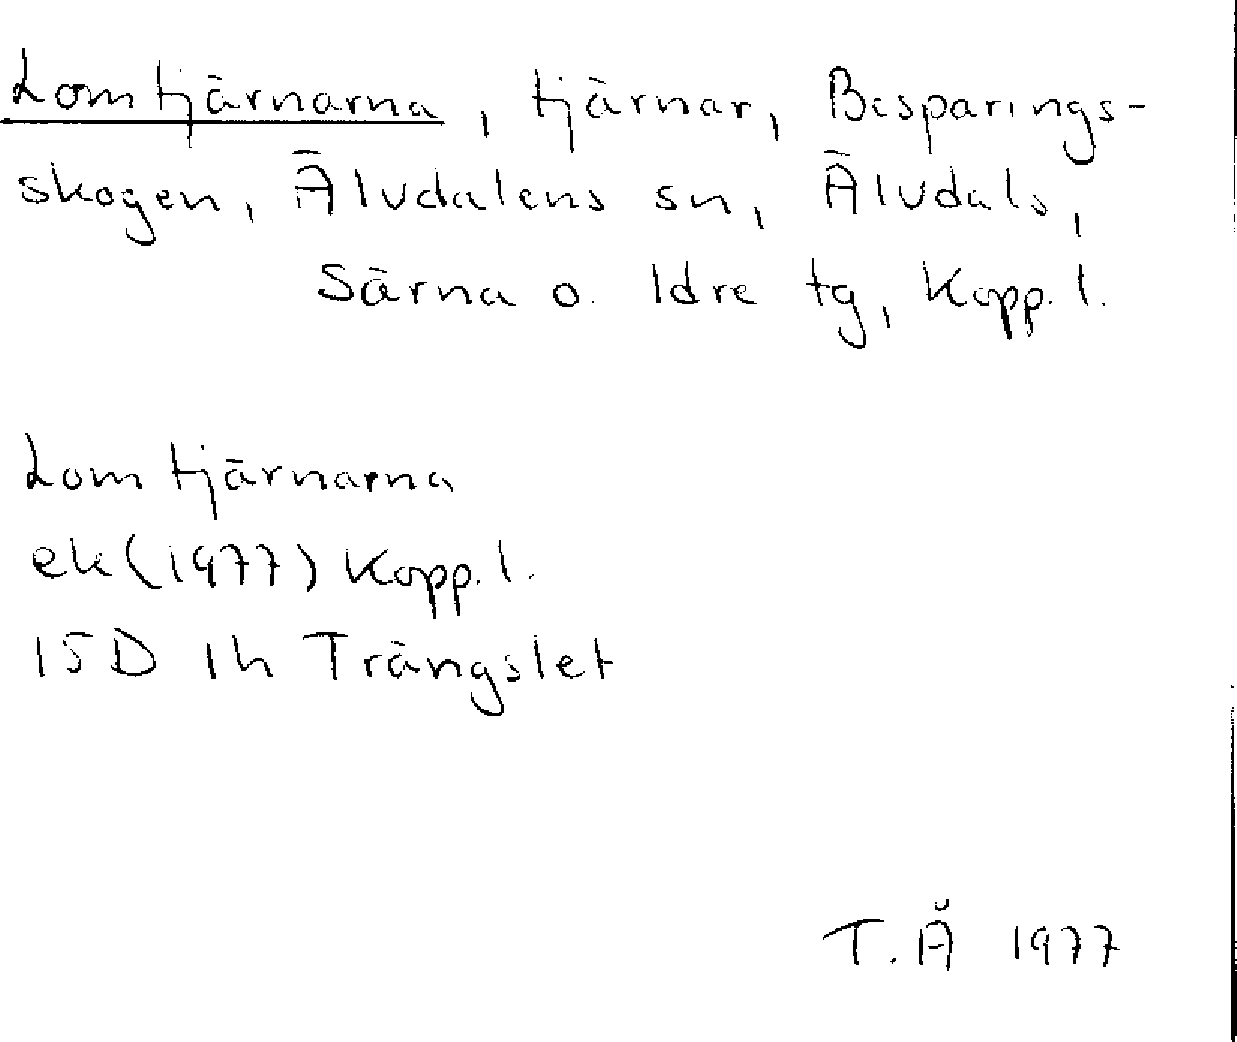 Lomtjärnarna, tjärnar, Besparings-
skogen, Älvdalens sn, Älvdals,
Särna o. Idre tg, Kopp. l.
Lomtjärnarna
ek (1977) Kopp. l.
15D 1h Trängslet
T. Å 1977